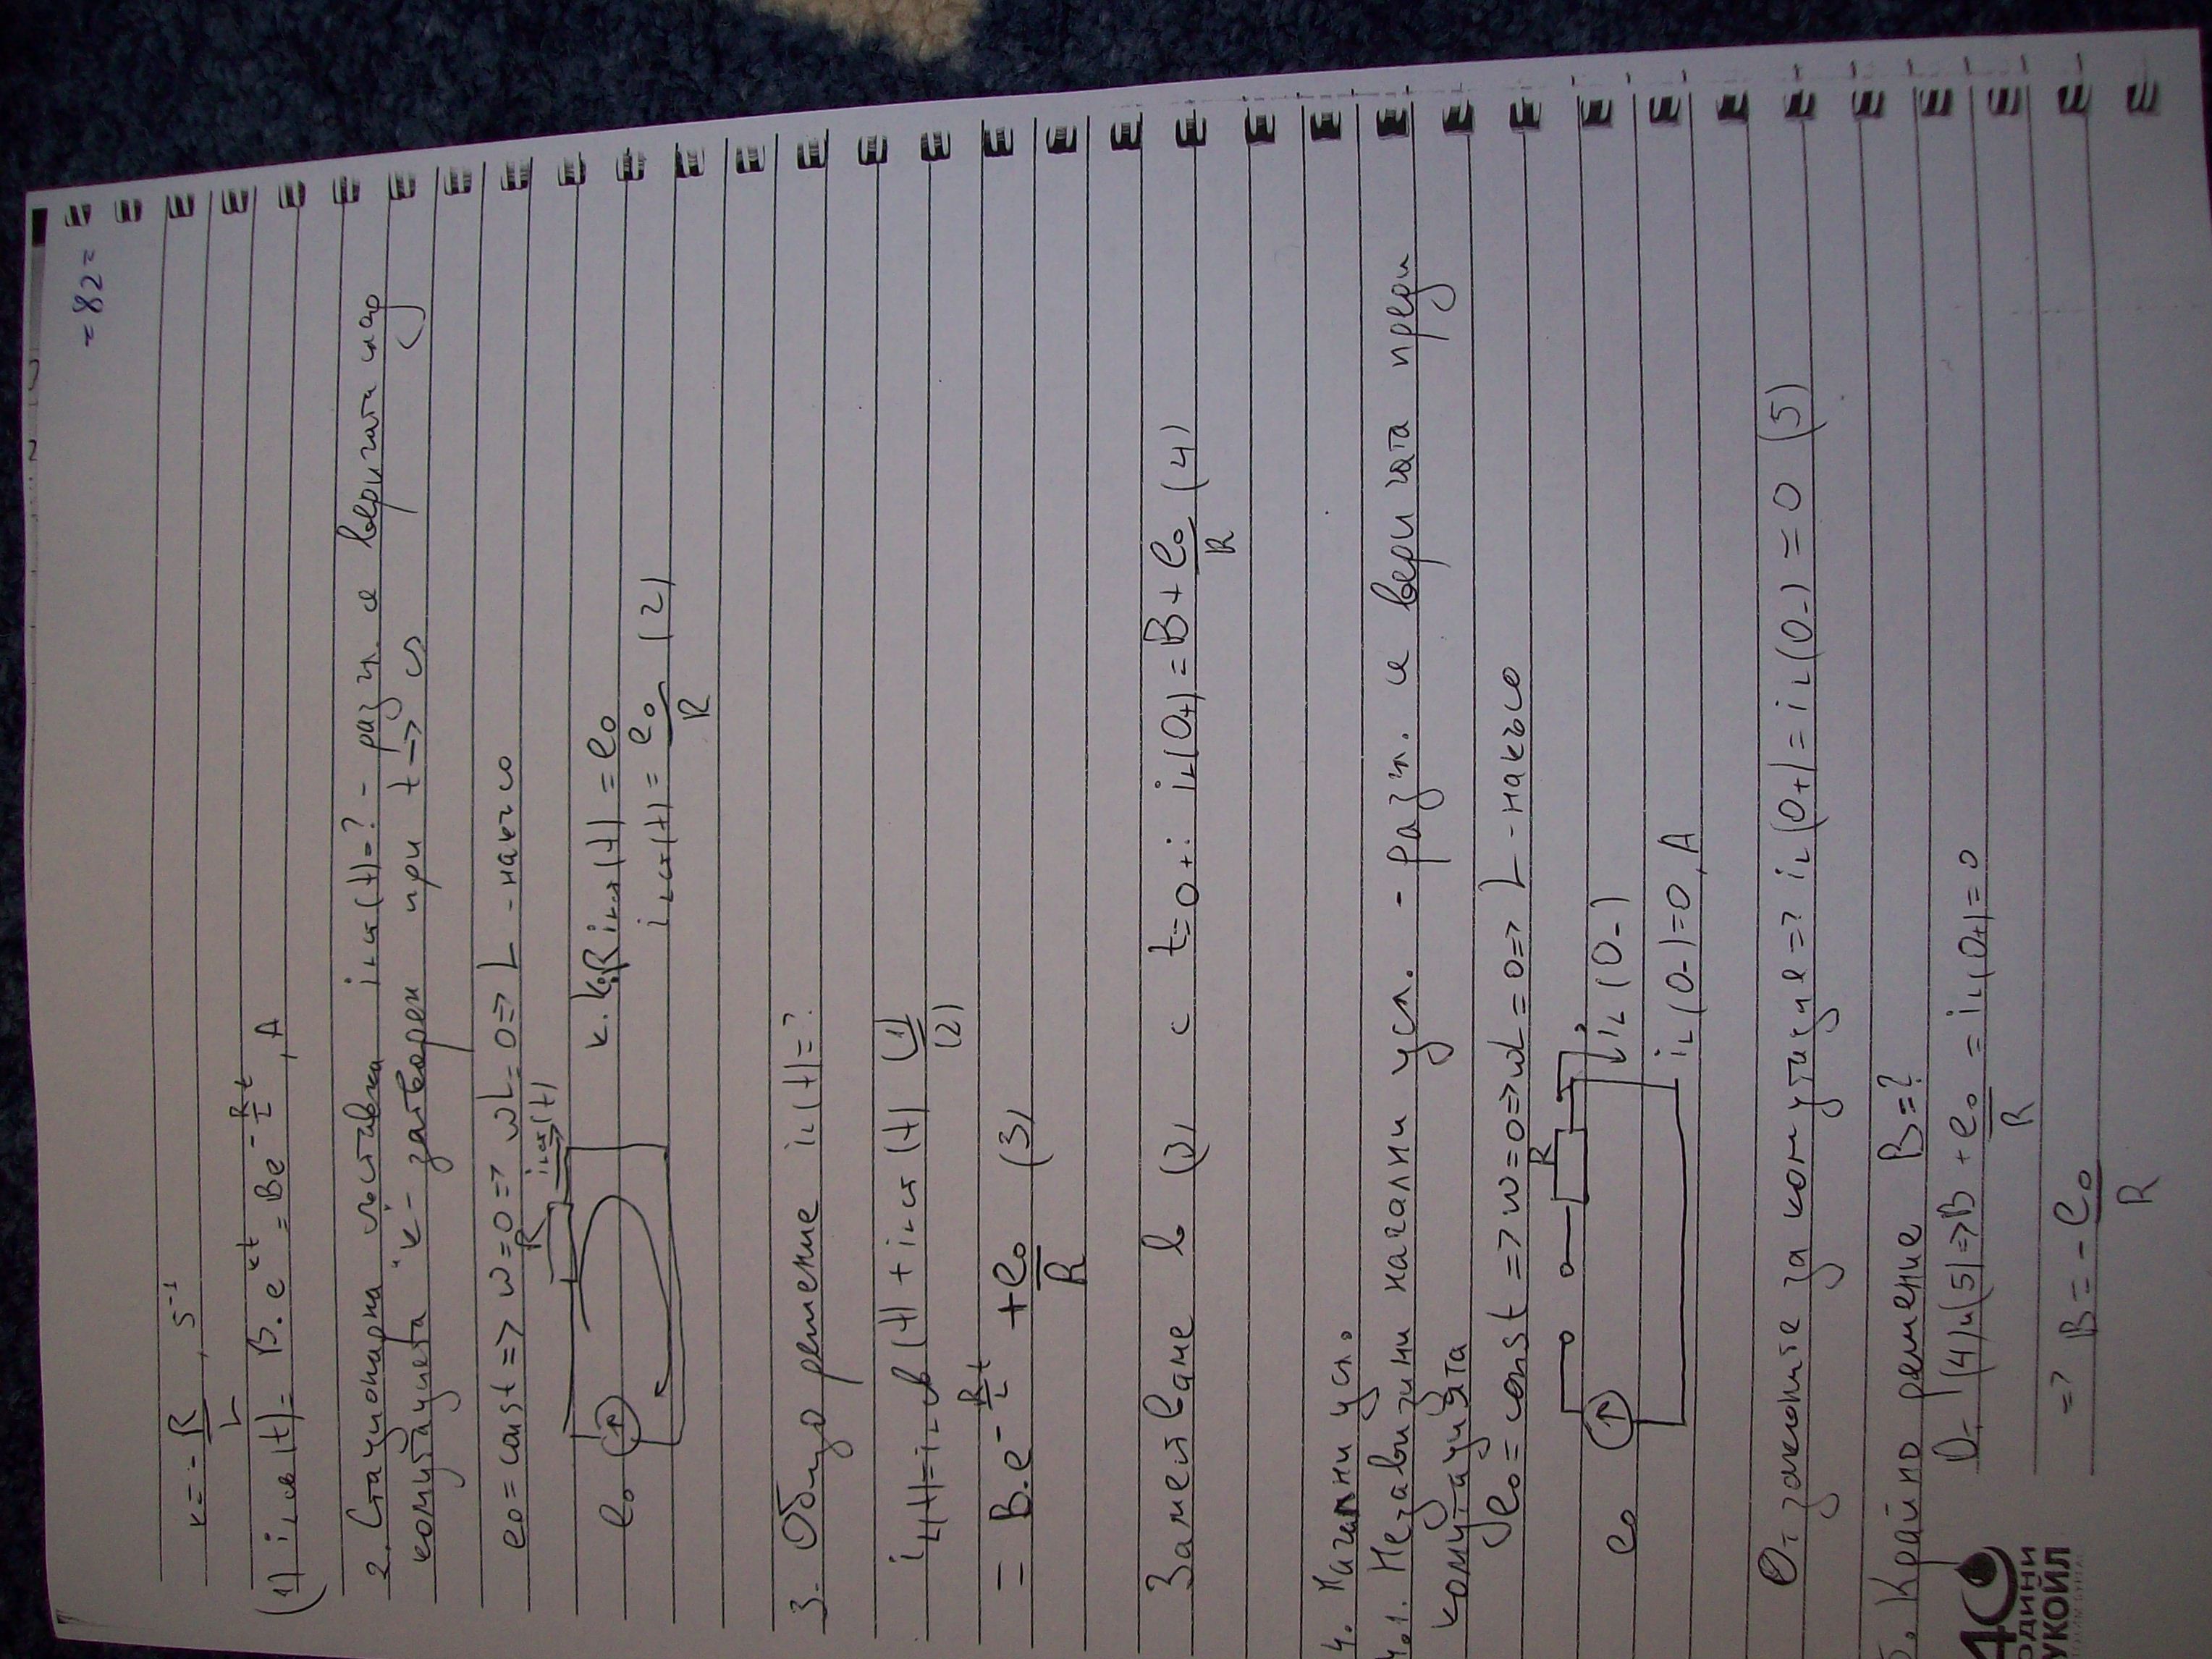 = 82 =
k = - R/L , s⁻¹
(1) iLсв(t) = B.e^kt = Be^-R/L t , A
2. Стационарна съставка iLст(t)=? - разгл. е веригата след
комутацията "к" - затворен при t → ∞
e0 = const => w=0 => wL=0 => L - накъсо
R iLст(t)
e0
R iLст(t) = e0
iLст(t) = e0/R (2)
3. Общо решение iL(t)=?
iL(t) = iLсв(t) + iLст(t) (1)
(2)
= B.e^-R/L t + e0/R (3)
Заместваме в (3) с t=0+: iL(0+) = B + e0/R (4)
4. Начални усл.
4.1. Независими начални усл. - разгл. се веригата преди
комутацията
e0 = const => w=0 => wL=0 => L - накъсо
R
e0
iL(0-)
iL(0-)=0, A
От законите за комутация => iL(0+) = iL(0-) = 0 (5)
5. Крайно решение B=?
От (4) и (5) => B + e0/R = iL(0+) = 0
=> B = - e0/R
40
ОДИНИ
УКОЙЛ